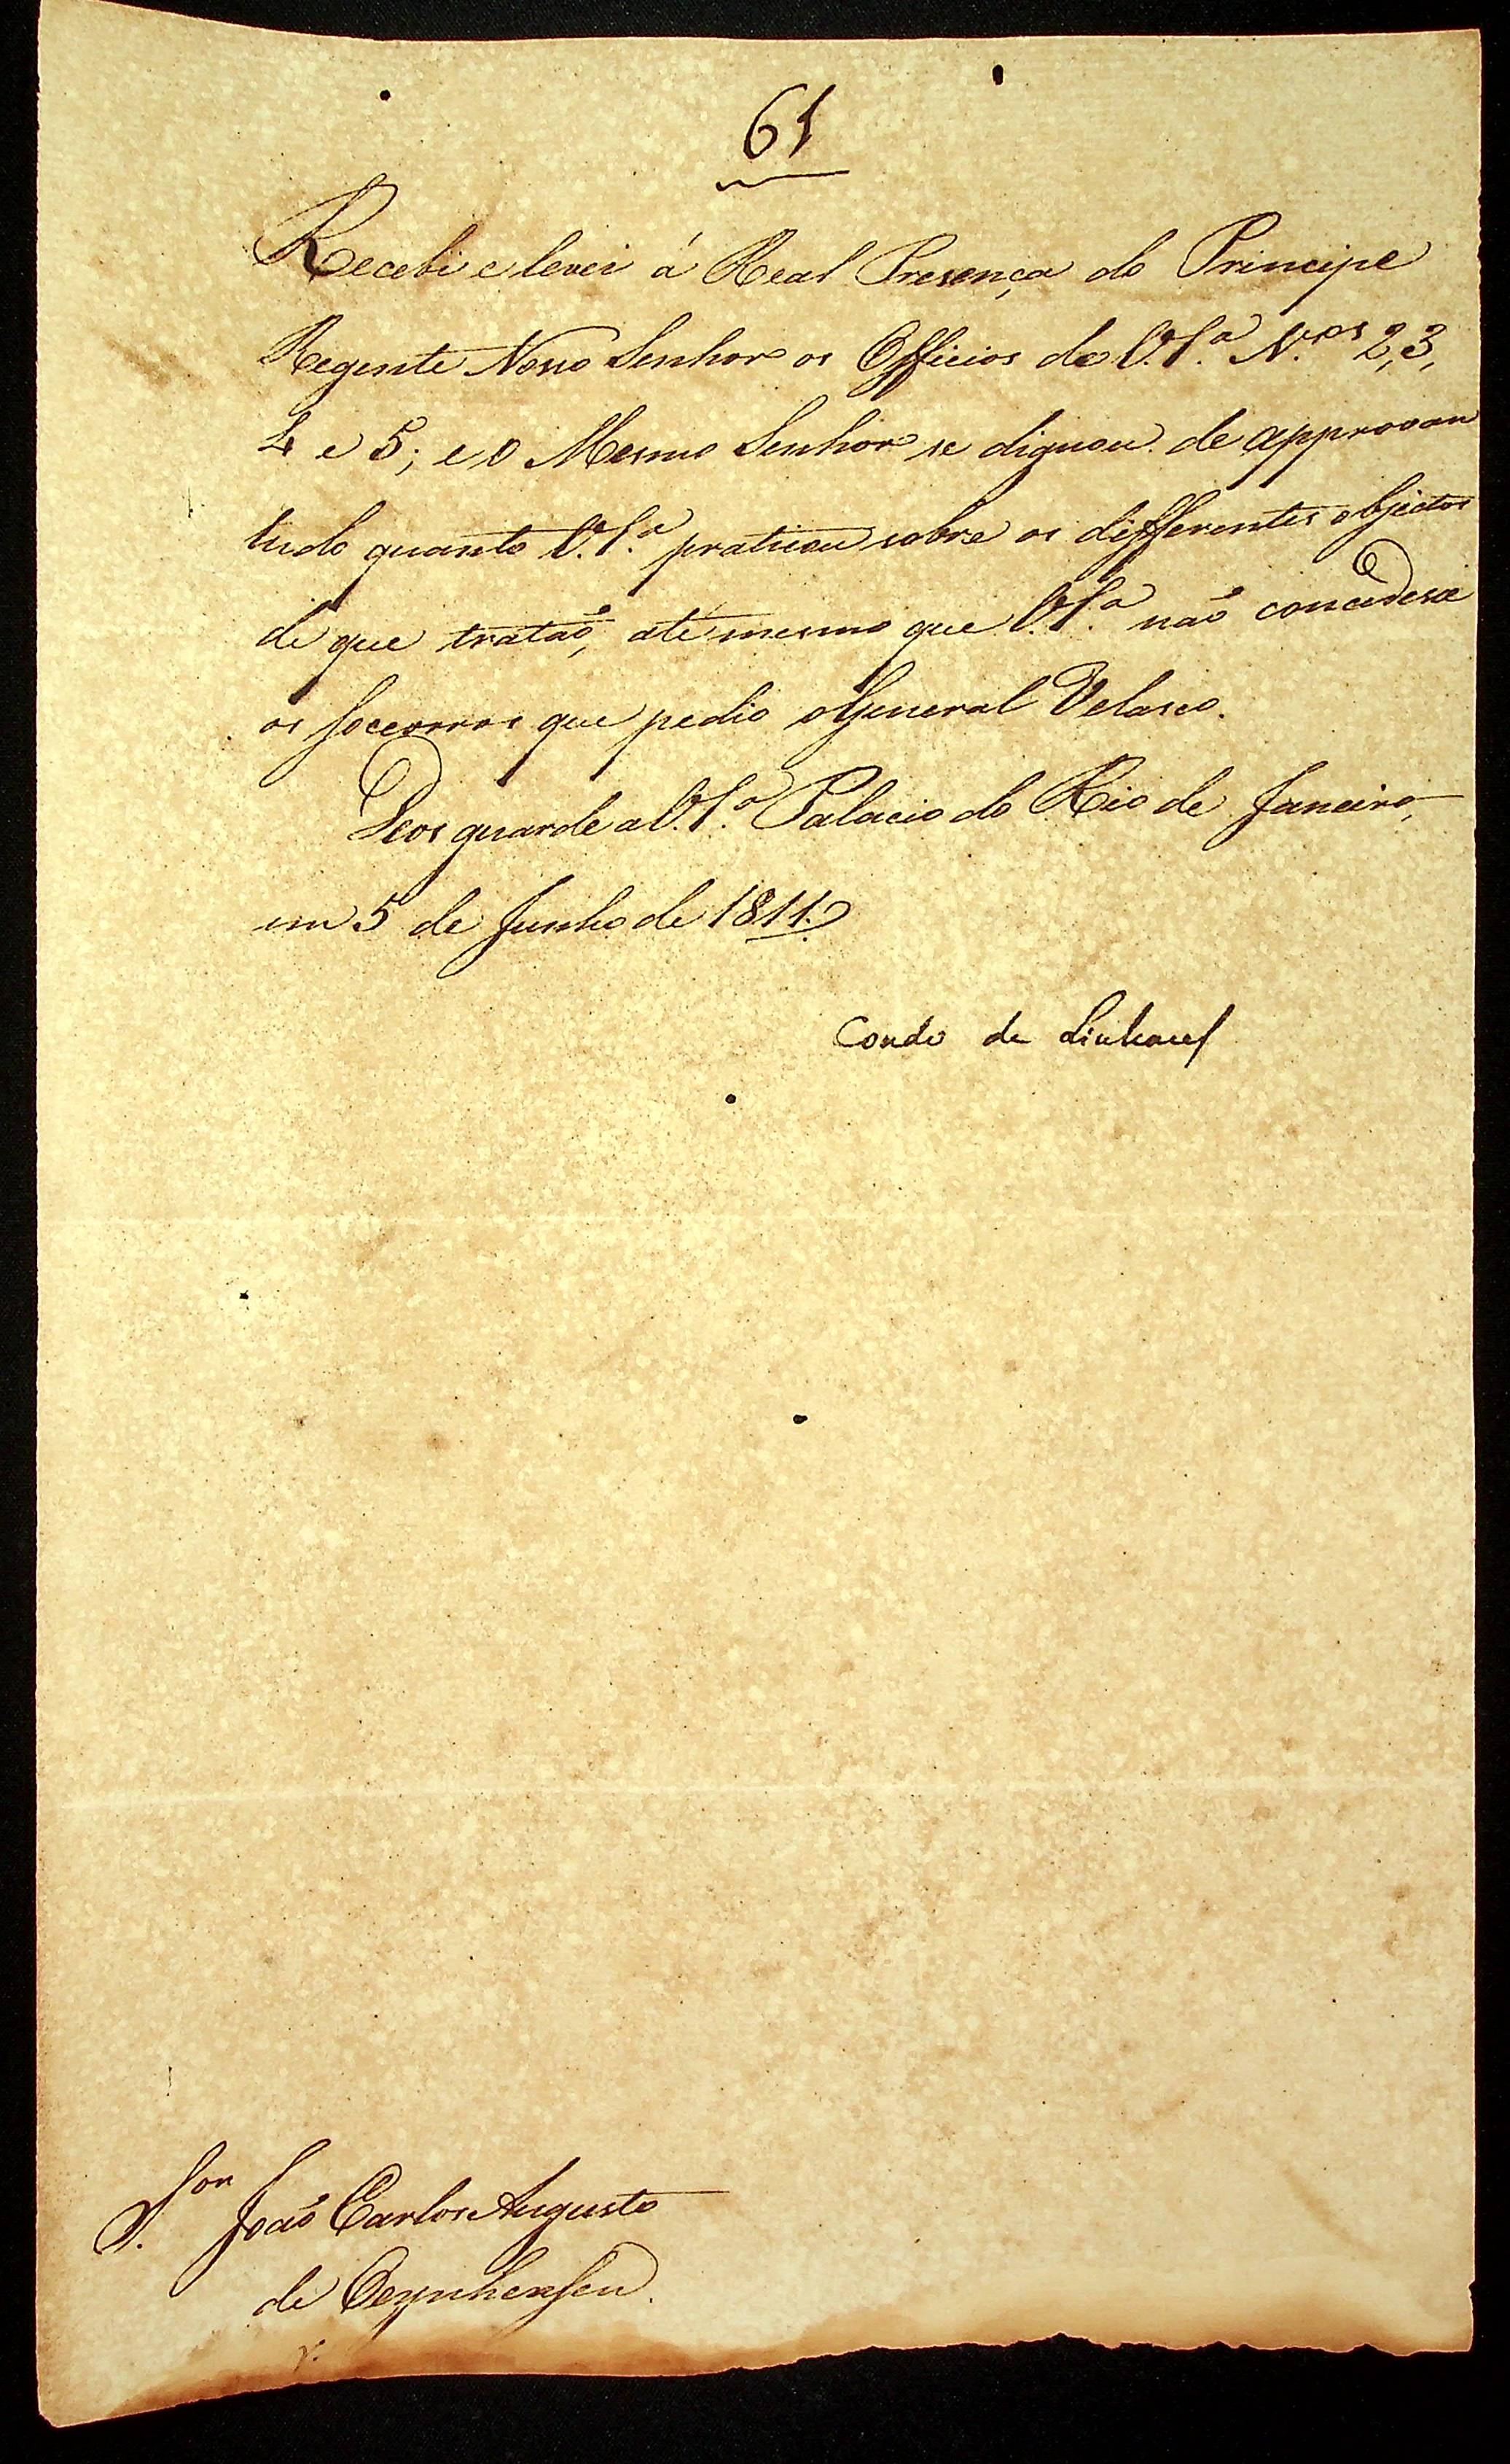 61
Recebi e levei á Real Presença do Principe
Regente Nosso Senhor os Officios de V.S.ª N.ºs 2, 3,
4 e 5; e o Mesmo Senhor se dignou de approvar
tudo quanto V.S.ª praticou sobre os differentes objectos
de que tratão, até mesmo que V.S.ª não concedesse
os socorros que pedio o General Velasco.
Deos guarde a V.S.ª Palacio do Rio de Janeiro,
em 5 de Junho de 1811.
Conde de Linhares
S.or João Carlos Augusto
de Oeynhensen.